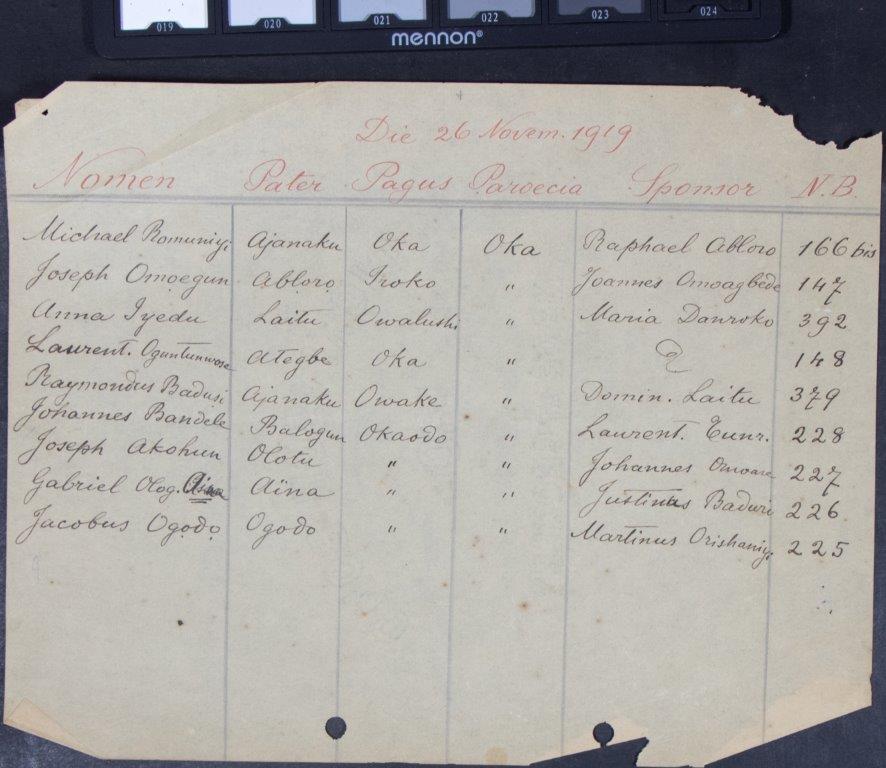 019 020 021 022 023 024
mennon®
Die 26 Novem. 1919
Nomen Pater Pagus Paroecia Sponsor N.B.
Michael Romuniyi Ajanaku Oka Oka Raphael Abloro 166 bis
Joseph Omoegun Abloro Iroko " Joannes Omoagbede 147
Anna Iyedu Laitu Owalushi " Maria Danroko 392
Laurent. Oguntunwose Ategbe Oka " 148
Raymondus Badusi Ajanaku Owake " Domin. Laitu 379
Johannes Bandele Balogun Okaodo " Laurent. Tunr. 228
Joseph Akohun Olotu " " Johannes Omoare 227
Gabriel Olog. Aina Aïna " " Justinus Baduri 226
Jacobus Ogọdọ Ogodo " " Martinus Orishaniyi 225